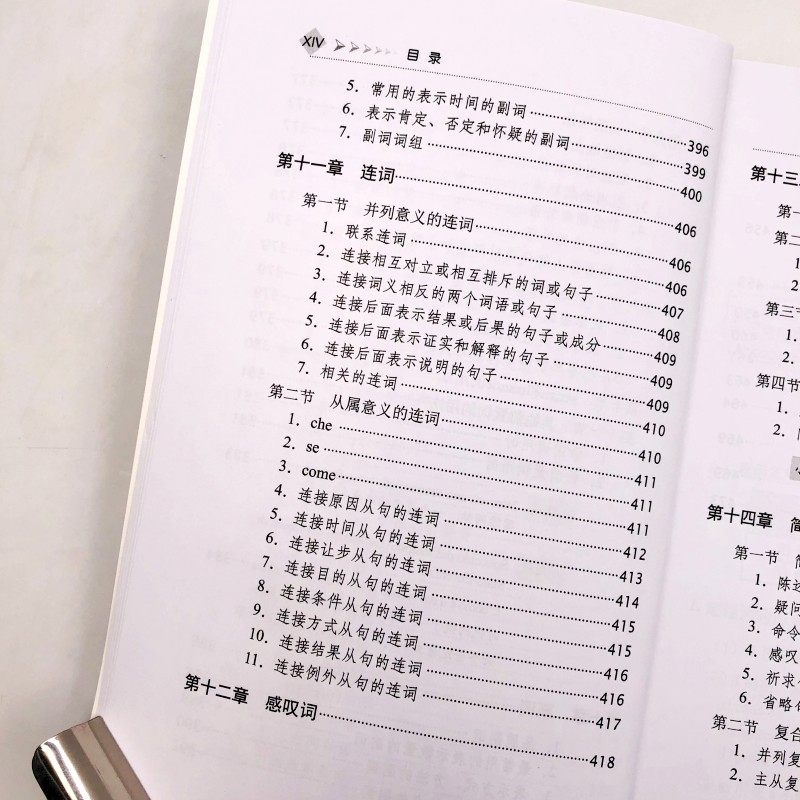 XIV 目录
5. 常用的表示时间的副词 396
6. 表示肯定、否定和怀疑的副词 399
7. 副词词组 400
第十一章 连词 406
第一节 并列意义的连词 406
1. 联系连词 406
2. 连接相互对立或相互排斥的词或句子 407
3. 连接词义相反的两个词语或句子 408
4. 连接后面表示结果或后果的句子或成分 409
5. 连接后面表示证实和解释的句子 409
6. 连接后面表示说明的句子 409
7. 相关的连词 410
第二节 从属意义的连词 410
1. che 411
2. se 411
3. come 411
4. 连接原因从句的连词 412
5. 连接时间从句的连词 413
6. 连接让步从句的连词 414
7. 连接目的从句的连词 415
8. 连接条件从句的连词 415
9. 连接方式从句的连词 416
10. 连接结果从句的连词 416
11. 连接例外从句的连词 417
第十二章 感叹词 418
第十三
第一
第二
1
2
第三
1.
2.
第四节
1.
2.
第十四章
第一节
1. 陈述
2. 疑问
3. 命令
4. 感叹
5. 祈求
6. 省略
第二节 复合
1. 并列复
2. 主从复